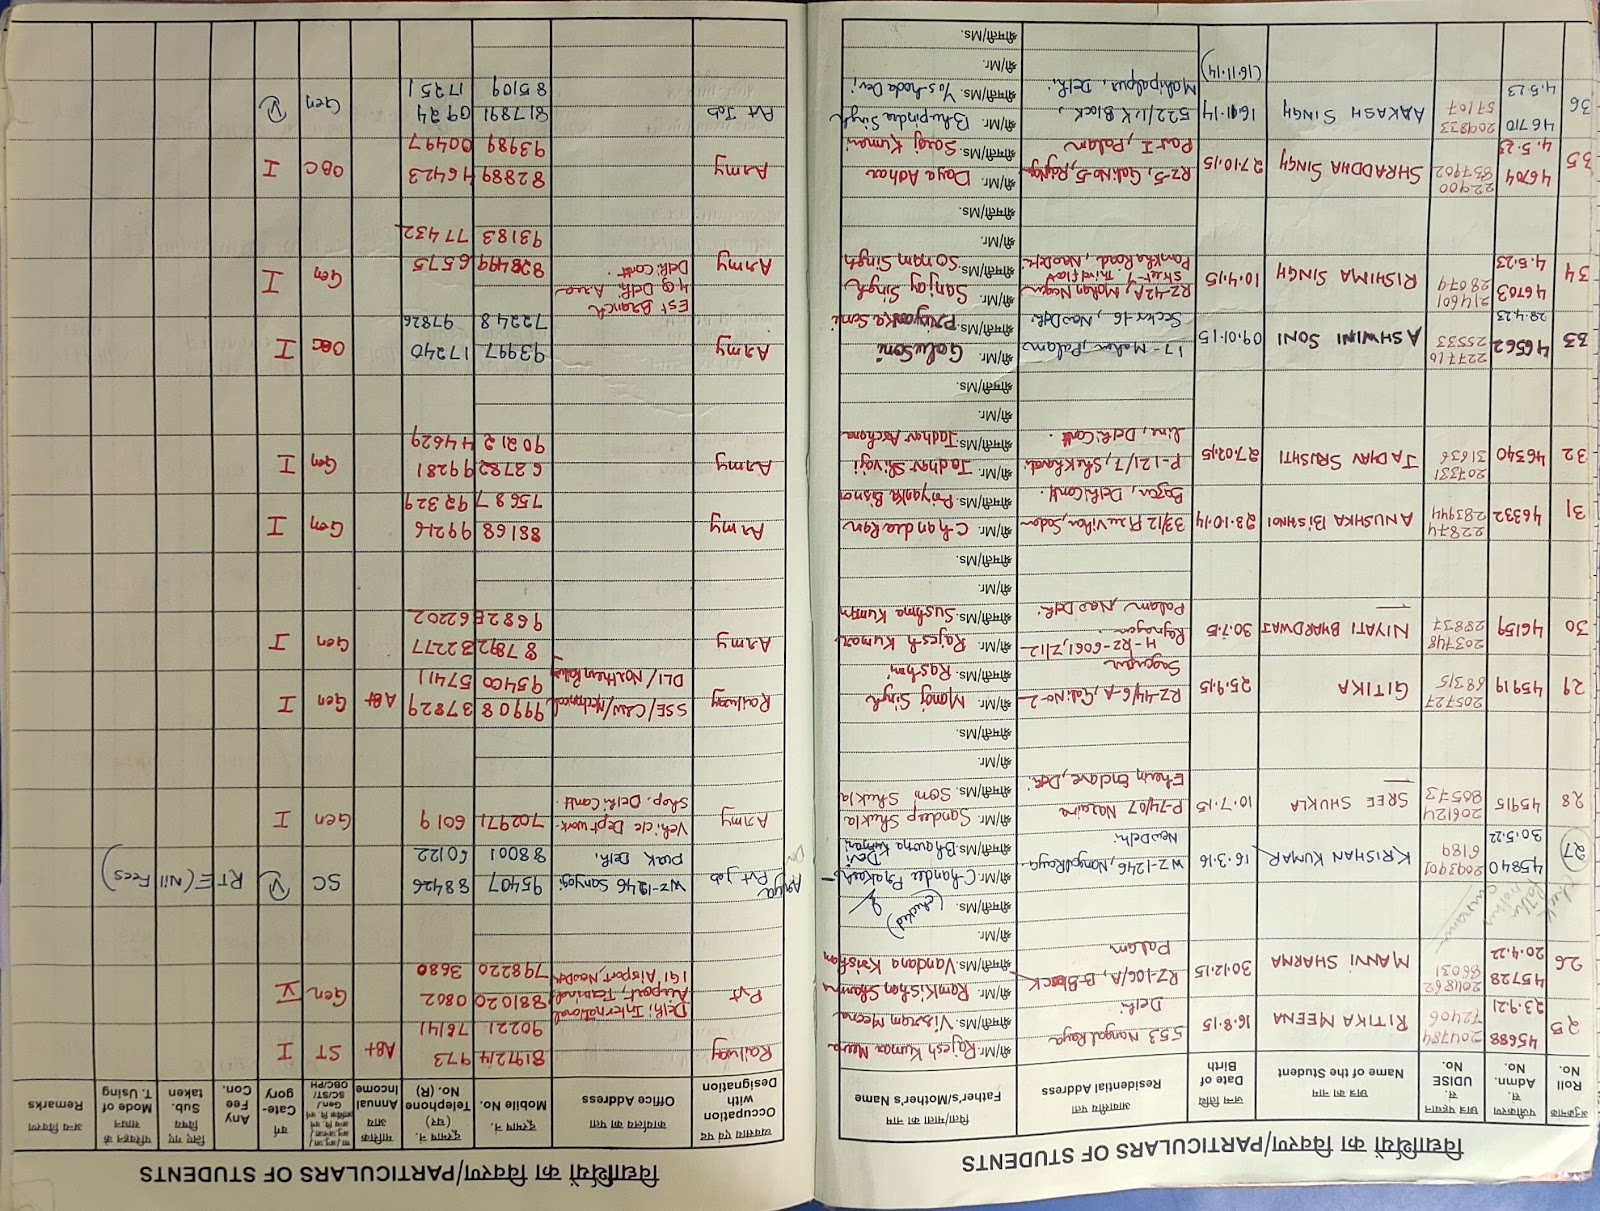 विद्यार्थियों का विवरण/PARTICULARS OF STUDENTS
अनुक्रमांक Roll No.
पंजीकरण सं. Admn. No.
छात्र पहचान सं. UDISE No.
छात्र का नाम Name of the Student
जन्म तिथि Date of Birth
आवासीय पता Residential Address
पिता/माता का नाम Father's/Mother's Name
25 45688 204784 RITIKA MEENA 16.8.15 553 Nangal Raya श्री/Mr. Rajesh Kumar Meena
23.9.21 72406 Delhi श्रीमती/Ms. Visram Meena
26 45728 204862 MANVI SHARMA 30.12.15 RZ-106/A, B-Block श्री/Mr. Ramkishan Sharma
20.4.22 86031 Palam श्रीमती/Ms. Vandana
श्री/Mr.
श्रीमती/Ms. (checked)
27 45840 2093901 KRISHAN KUMAR 16.3.16 WZ-1246, Nangal Raya श्री/Mr. Chander Prakash
30.5.22 6189 New Delhi श्रीमती/Ms. Bhawna Kumari Devi
28 45915 206124 SREE SHUKLA 10.7.15 P-74/07 Naraina श्री/Mr. Sandeep Shukla
80573 Ehem Enclave, Delhi श्रीमती/Ms. Som Shukla
श्री/Mr.
श्रीमती/Ms.
29 45919 205727 GITIKA 25.9.15 RZ-44/6-A, Gali No-2 श्री/Mr. Manoj Singh
68315 Sagarpur श्रीमती/Ms. Rashmi
30 46159 203748 NIYATI BHARDWAJ 30.7.15 H-RZ-6061, Z/12 Rajnagar श्री/Mr. Rajesh Kumar
28837 Palam, New Delhi श्रीमती/Ms. Sushma Kumari
श्री/Mr.
श्रीमती/Ms.
31 46332 22874 ANUSHKA BISHNOI 23.10.14 33/12 Pratap Vihar, Sadar श्री/Mr. Chandra Ran
283944 Bazar, Delhi Cantt. श्रीमती/Ms. Priyanka Bisnoi
32 46340 207331 JADHAV SRISHTI 27.02.15 P-121/7, Shekhawati श्री/Mr. Jadhav Shivaji
31636 line, Delhi Cantt. श्रीमती/Ms. Jadhav Archana
श्री/Mr.
श्रीमती/Ms.
33 46562 227716 ASHWINI SONI 09.01.15 17- Malen, Palam श्री/Mr. Golu Soni
28.4.23 25533 Sector-16, New Delhi श्रीमती/Ms. Priyanka Soni
34 46703 214601 RISHIMA SINGH 10.4.15 RZ-42A, Mohan Nagar श्री/Mr. Sanjay Singh
4.5.23 28079 Street-7, Third floor Pankha Road, New Delhi श्रीमती/Ms. Sonam Singh
श्री/Mr.
श्रीमती/Ms.
35 46704 22900 SHRADDHA SINGH 27.10.15 RZ-5, Gali No-5, Rajnagar श्री/Mr. Daya Adhar
4.5.23 857902 Part I, Palam श्रीमती/Ms. Saroj Kumari
36 46710 209833 AAKASH SINGH 16.11.14 522/1, K Block, श्री/Mr. Bhupinder Singh
4.5.23 57107 (16.11.14) Mahipalpur, Delhi श्रीमती/Ms. Yashoda Devi
श्री/Mr.
श्रीमती/Ms.
विद्यार्थियों का विवरण/PARTICULARS OF STUDENTS
व्यवसाय एवं पद Occupation with Designation
कार्यालय का पता Office Address
दूरभाष नं. Mobile No.
दूरभाष (घर) Telephone No. (R)
मासिक आय Annual Income
Gen./SC/ST/OBC/PH
वर्ग Cate-gory
Any Fee Con.
लिए गए विषय Sub. taken
परिवहन के साधन Mode of T. Using
अन्य विवरण Remarks
Railway 8197214 973 AB+ ST I
90221 76141
Pvt Delhi International 881020 0802 Gen V
Airport, Terminal
1G1 Airport, New Delhi 798220 3680
Pvt job WZ-1246 Sanyosi 95407 88426 SC V RTE (Nill Fees)
Park Delhi. 88001 50122
Army Vehicle Dept work- 702971 6019 Gen I
shop. Delhi Cantt.
Railway SSE/C&W/Technical 99908 37829 AB+ Gen I
DLI/Northern Railway 95400 57411
Army 87892 32277 Gen I
96828 62202
Army 88168 99216 Gen I
75687 92329
Army 62782 99281 Gen I
90212 44629
Army 93997 17240 OBC I
72248 97826
Army Est Branch 828499 6575 Gen I
HQ Delhi Area
Delhi Cantt. 93183 77432
Army 82889 46423 OBC I
93989 00497
Pvt Job 817891 0924 Gen V
85109 17251